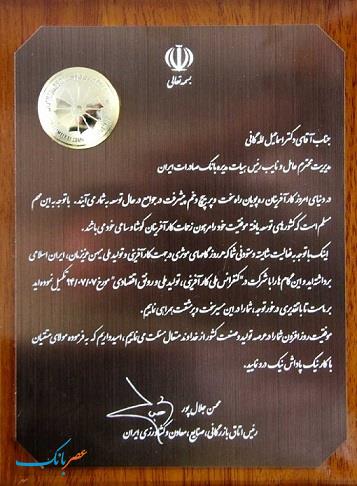 بسمه تعالی
جناب آقای دکتر اسماعیل لله گانی
مدیریت محترم عامل و نایب رئیس هیات مدیره بانک صادرات ایران
در دنیای امروز کارآفرینان ره پویان راه سخت و پر پیچ و خم پیشرفت در جوامع در حال توسعه به شمار می آیند. با توجه به این مهم
مسلم است که کشورهای توسعه یافته موفقیت خود را مرهون زحمات کارآفرینان کوشا و ساعی خود می باشد.
اینک با توجه به فعالیت شایسته و ستودنی شما که مرور گامهای موثری در جهت کارآفرینی و تولید ملی میهن عزیزمان، ایران اسلامی
برداشته اید و این گام ها را با شرکت در "کنفرانس ملی کارآفرینی، تولید ملی و رونق اقتصادی" مورخ ۹۴/۰۷/۰۷ تکمیل نموده اید
بر ماست تا با تقدیری در خور توجه، شما را در این مسیر سخت و پرمشقت همراهی نماییم.
موفقیت روزافزون شما را در عرصه تولید و صنعت کشور از خداوند متعال مسئلت می نماییم، امید داریم که به فرموده مولای متقیان
با کار نیک پاداش نیک درو نمایید.
محسن جلال پور
رئیس اتاق بازرگانی، صنایع، معادن و کشاورزی ایران
عصر بانک